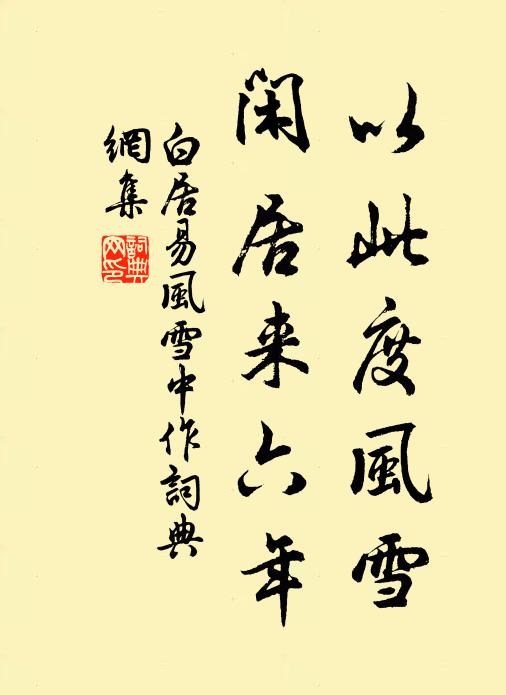 以此度風雪
閑居来六年
白居易風雪中作詞典
網集
詞典
网印